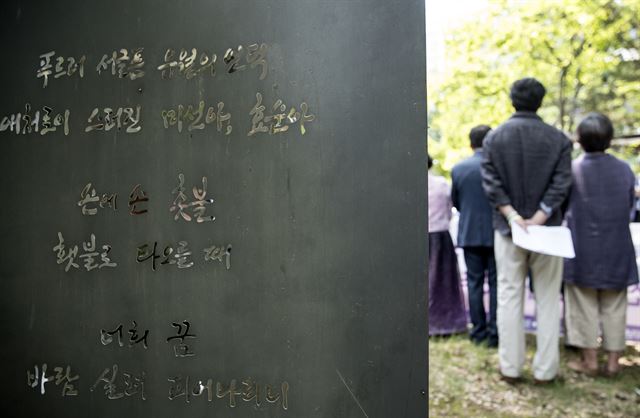 푸르러 서글픈 유월의 언덕
애처로이 스러진 미선아, 효순아
손에 손 촛불
횃불로 타오를 때
너희 꿈
바람 실려 피어나리니